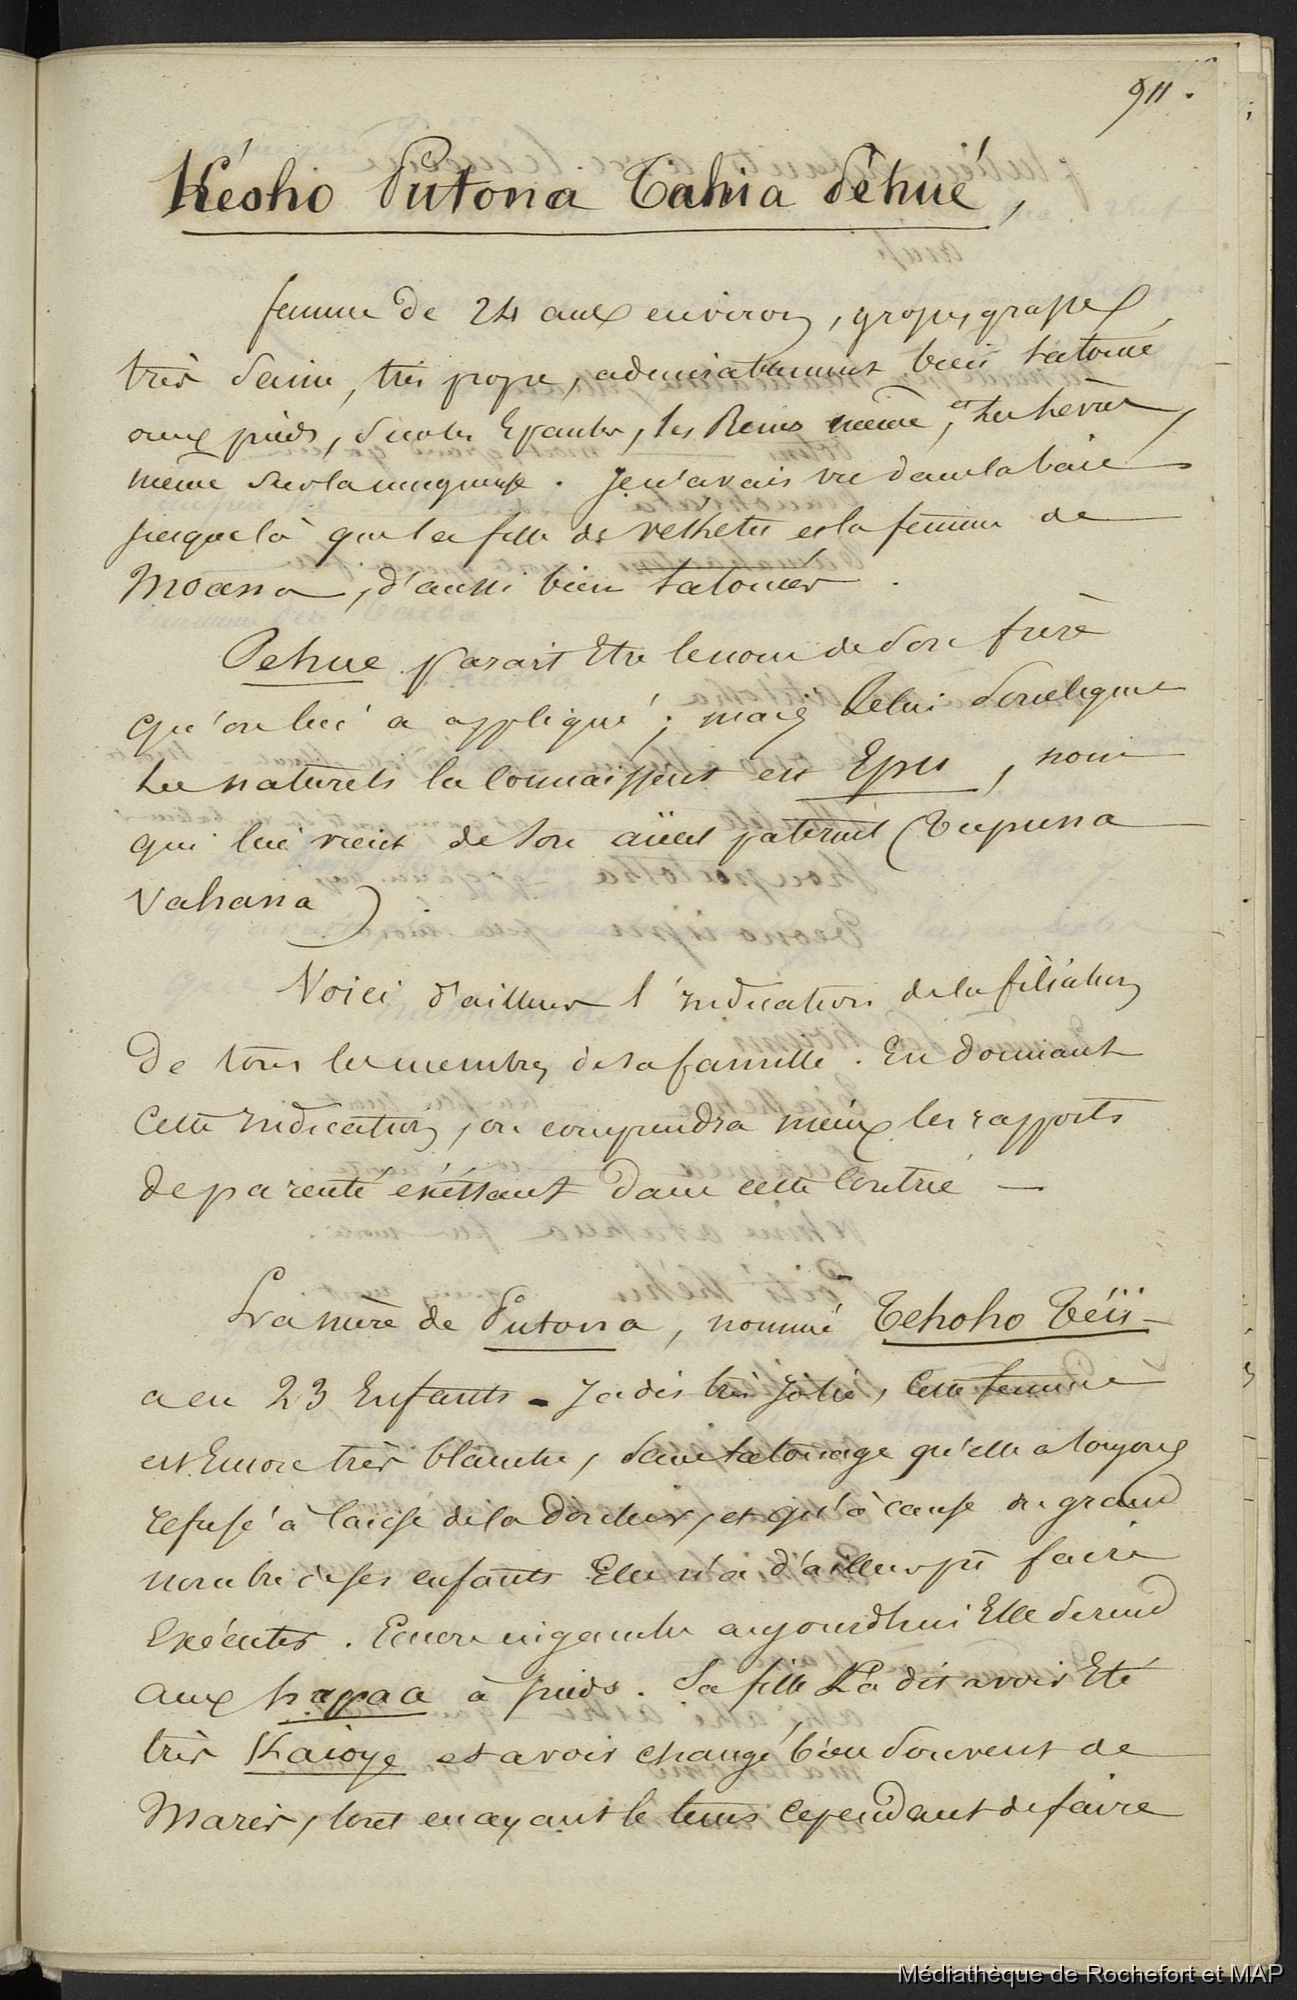 911.
Késho Putona Tahia Péhué,
femme de 24 ans environ, grosse, grasse,
très saine, très propre, admirablement bien tatouée
aux pieds, sur les Epaules, les Reins même, et les lèvres,
même sur la muqueuse. Je n'avais vu dans la baie
jusque là que la fille de Vekhetu et la femme de
Moana, d'aussi bien tatouées.
Pehue parait Etre le nom de son frère
qu'on lui a appliqué ; mais celui sous lequel
les naturels la connaissent est Epu, nom
qui lui vient de son aïeul paternel (Tupuna
Vahana).
Voici d'ailleurs l'indication de la filiation
de tous les membres de sa famille. En donnant
cette indication, on comprendra mieux les rapports
de parenté existant dans cette contrée —
La mère de Putona, nommée Tehoho Téïi —
a eu 23 Enfants - Jadis très jolie, cette femme
est Encore très blanche, sans tatouage qu'elle a toujours
refusé à cause de la douleur, et qu'à cause du grand
nombre de ses enfants Elle n'a d'ailleurs pû faire
Exécuter. Encore ingambe aujourd'hui Elle se rend
aux hapaa à pieds. Sa fille la dit avoir Eté
très Kaioye et avoir changé bien souvent de
Maris, tout en ayant le tems cependant de faire
Médiathèque de Rochefort et MAP